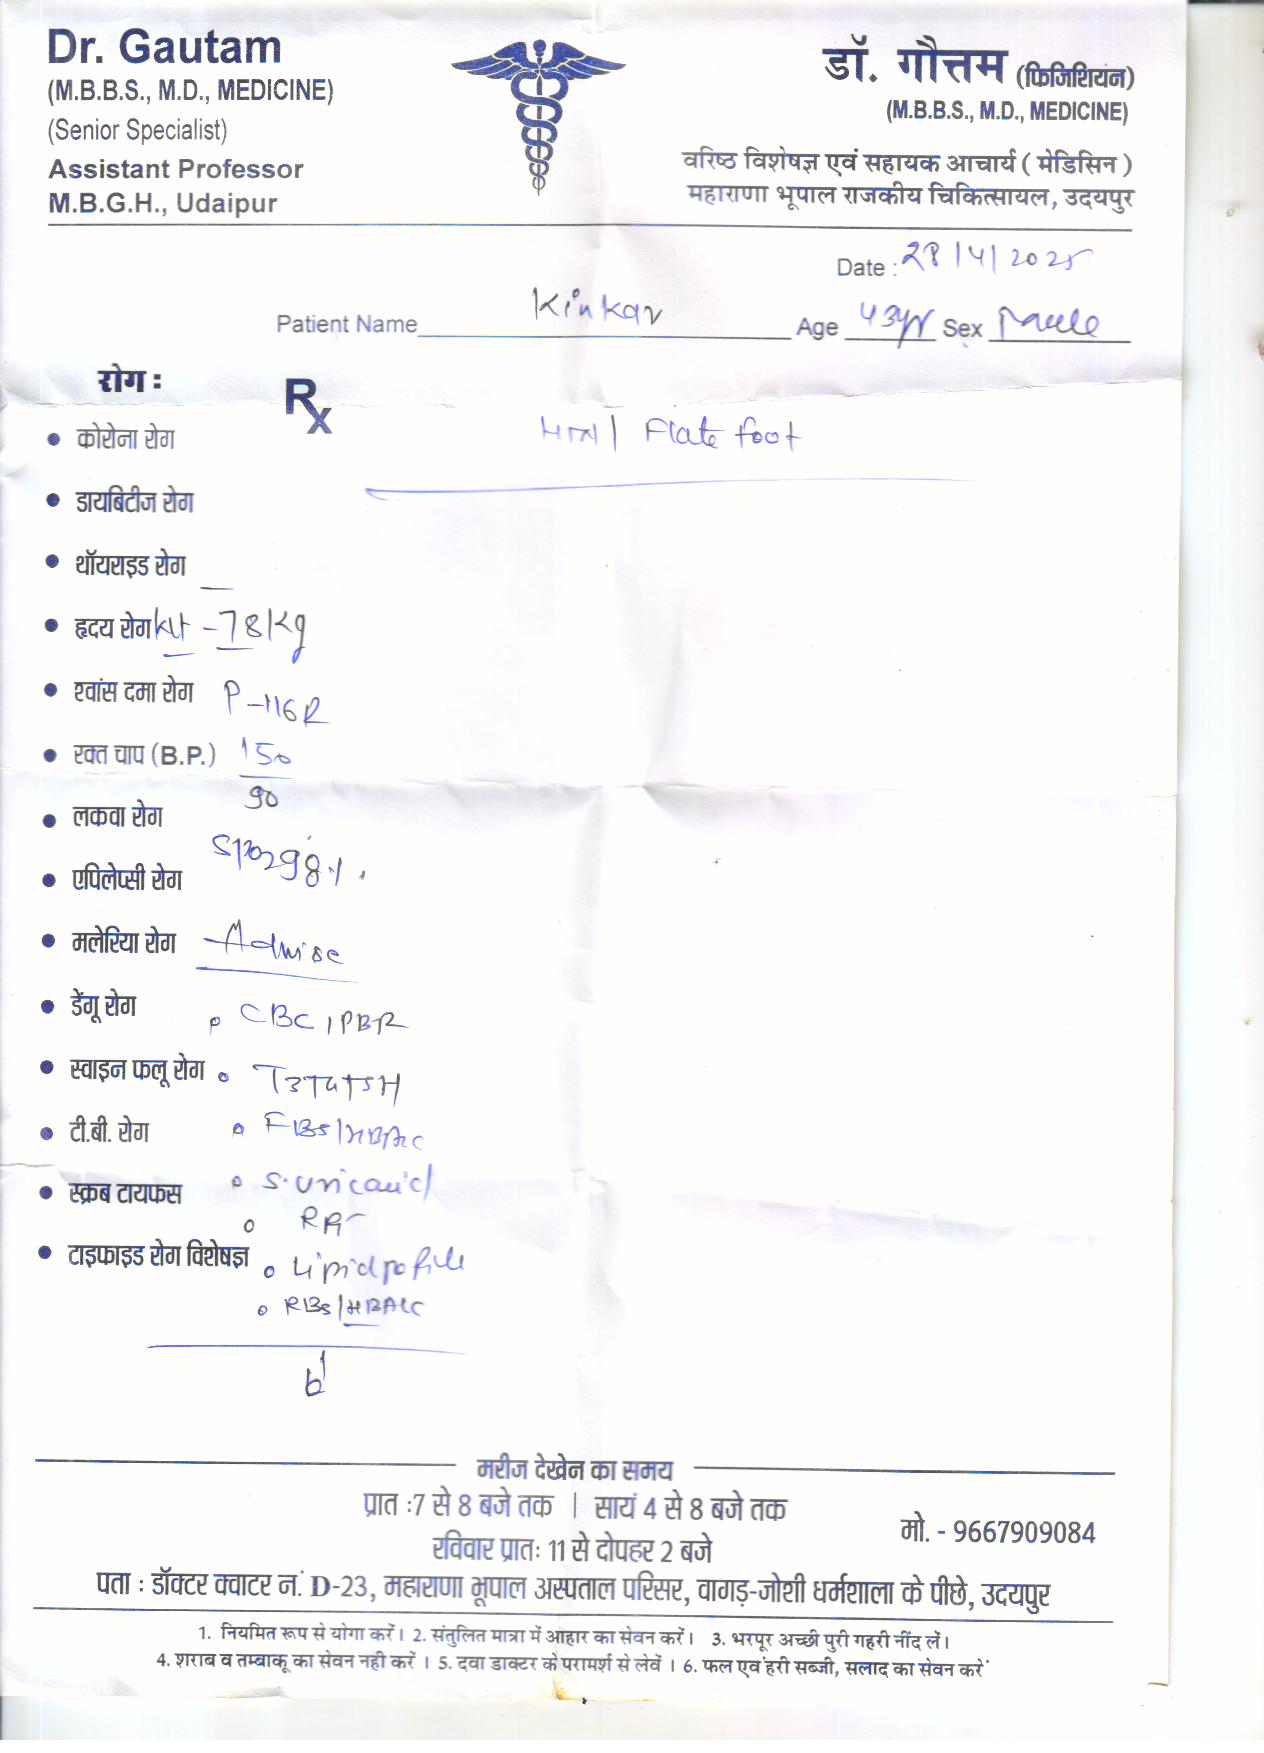 Dr. Gautam
(M.B.B.S., M.D., MEDICINE)
(Senior Specialist)
Assistant Professor
M.B.G.H., Udaipur
डॉ. गौत्तम (फिजिशियन)
(M.B.B.S., M.D., MEDICINE)
वरिष्ठ विशेषज्ञ एवं सहायक आचार्य ( मेडिसिन )
महाराणा भूपाल राजकीय चिकित्सायल, उदयपुर
Date : 28/4/2025
Patient Name Kinkar Age 43yr Sex Male
रोग :
Rx
HTN / Flate foot
• कोरोना रोग
• डायबिटीज रोग
• थॉयराइड रोग
• हृदय रोग Wt - 78 Kg
• श्वांस दमा रोग P - 116 R
• रक्त चाप (B.P.) 150
90
• लकवा रोग
SPO2 98%
• एपिलेप्सी रोग
• मलेरिया रोग Advise
• डेंगू रोग
CBC, PBF
• स्वाइन फलू रोग
T3T4TSH
• टी.बी. रोग
FBS/HBA1C
• स्क्रब टायफस
S. Uric acid
RFT
• टाइफाइड रोग विशेषज्ञ
Lipid pofile
RBS/HBA1C
मरीज देखेन का समय
प्रात :7 से 8 बजे तक | सायं 4 से 8 बजे तक
रविवार प्रातः 11 से दोपहर 2 बजे
मो. - 9667909084
पता : डॉक्टर क्वाटर नं. D-23, महाराणा भूपाल अस्पताल परिसर, वागड़-जोशी धर्मशाला के पीछे, उदयपुर
1. नियमित रूप से योगा करें। 2. संतुलित मात्रा में आहार का सेवन करें। 3. भरपूर अच्छी पुरी गहरी नींद लें।
4. शराब व तम्बाकू का सेवन नही करें । 5. दवा डाक्टर के परामर्श से लेवें । 6. फल एवं हरी सब्जी, सलाद का सेवन करें